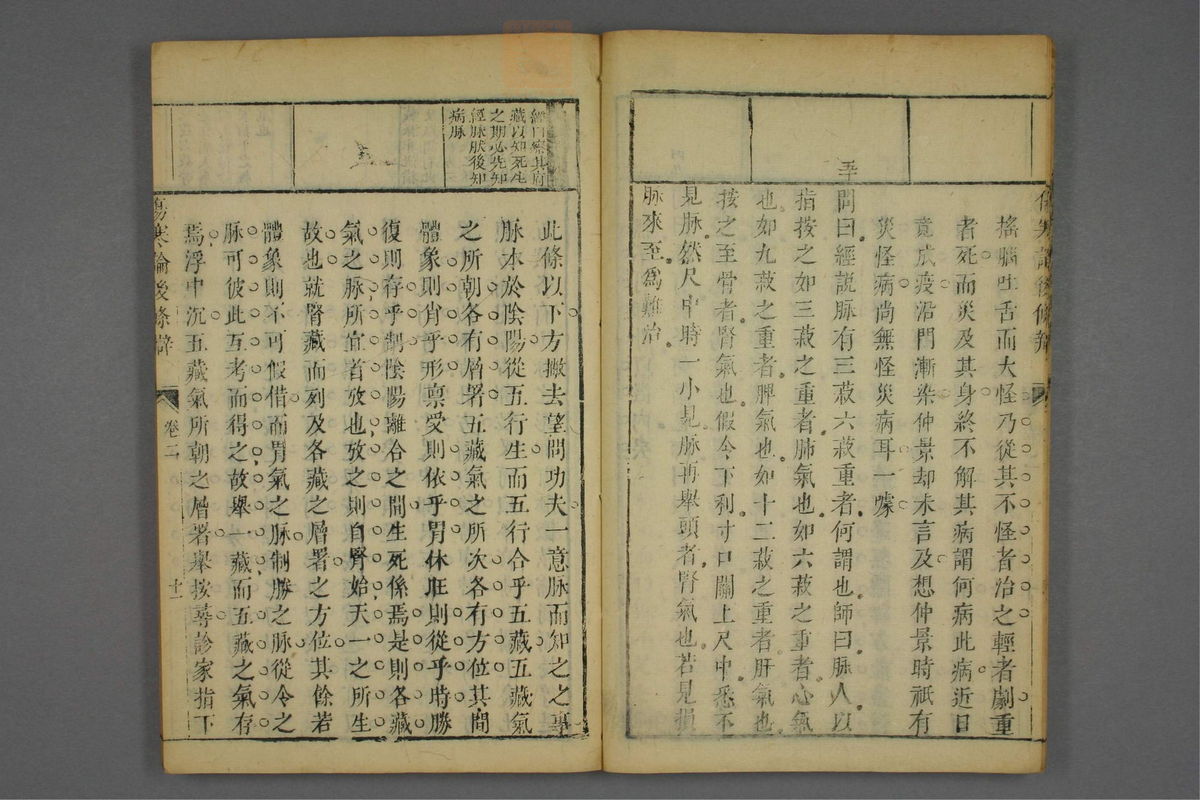 搖腦吐舌而大怪乃從其不怪者治之輕者劇重
者死而災及其身終不解其病謂何病此病近日
竟成疫沿門漸染仲景却未言及想仲景時祇有
災怪病尚無怪災病耳一噱
五十
問曰經說脉有三菽六菽重者何謂也師曰脉人以
指按之如三菽之重者肺氣也如六菽之重者心氣
也如九菽之重者脾氣也如十二菽之重者肝氣也
按之至骨者腎氣也假令下利寸口關上尺中悉不
見脉然尺中時一小見脉再舉頭者腎氣也若見損
脉來至爲難治
經曰察其府
藏以知死生
之期必先知
經脉然後知
病脉
此條以下方撇去望問功夫一意脉而知之之事
脉本於陰陽從五行生而五行合乎五藏五藏氣
之所朝各有層署五藏氣之所次各有方位其間
體象則肖乎形稟受則依乎胃休旺則從乎時勝
復則存乎制陰陽離合之間生死係焉是則各藏
氣之脉所宜者攷也攷之則自腎始天一之所生
故也就腎藏而列及各藏之層署之方位其餘若
體象則不可假借而胃氣之脉制勝之脉從令之
脉可彼此互考而得之故舉一藏而五藏之氣存
焉浮中沉五藏氣所朝之層署舉按尋診家指下
傷寒論後條辯
卷二
十一